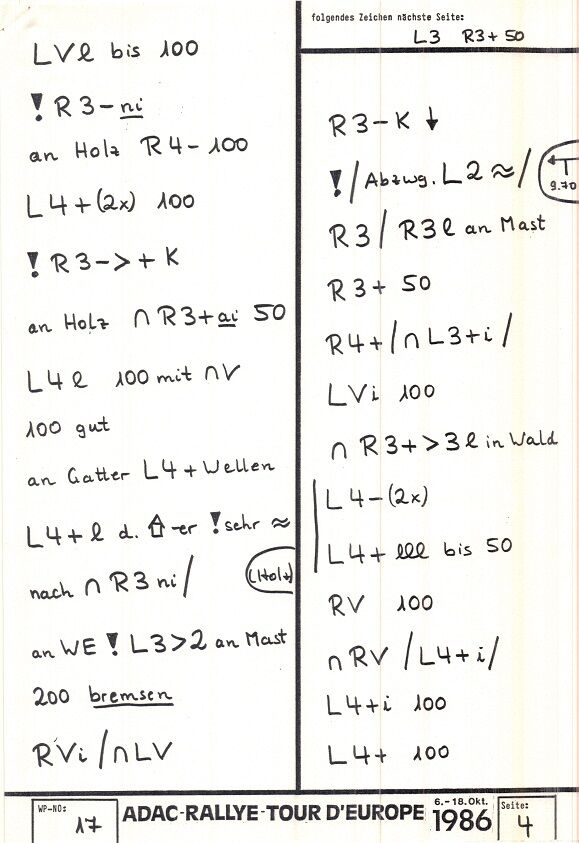 LVl bis 100
! R3-ni
an Holz R4- 100
L4+(2x) 100
! R3->+K
an Holz ∩R3+ai 50
L4l 100 mit ∩V
100 gut
an Gatter L4+Wellen
L4+l d. ⇧-er !sehr ≈
nach ∩R3ni/ (Holz)
an WE ! L3>2 an Mast
200 bremsen
RVi/∩LV
folgendes Zeichen nächste Seite:
L3 R3+ 50
R3-K ↓
!/Abzwg. L2 ≈/ 9.70
R3/R3l an Mast
R3+ 50
R4+/∩L3+i/
LVi 100
∩R3+>3l in Wald
L4-(2x)
L4+lll bis 50
RV 100
∩RV/L4+i/
L4+i 100
L4+ 100
WP-NO: 17
ADAC-RALLYE-TOUR D'EUROPE
6.-18.Okt. 1986
Seite: 4